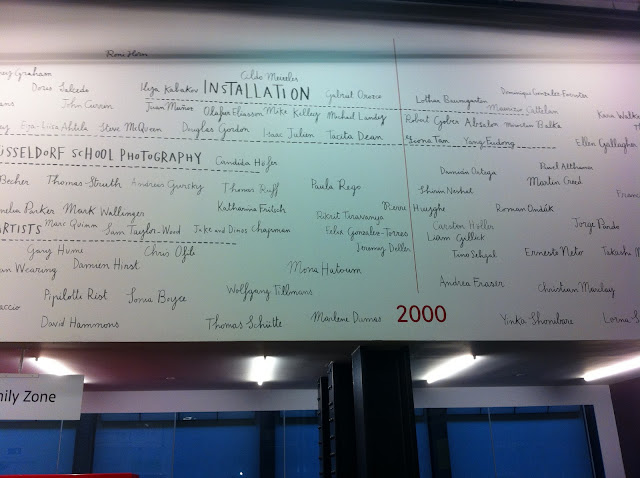 Roni Horn
Graham Cildo Meireles
Doris Salcedo Ilya Kabakov INSTALLATION Gabriel Orozco Lothar Baumgarten Dominique Gonzalez-Foerster
John Currin Juan Muñoz Olafur Eliasson Mike Kelley Michael Landy Maurizio Cattelan
Eija-Liisa Ahtila Steve McQueen Douglas Gordon Isaac Julien Tacita Dean Robert Gober Absalon Miroslaw Balka Kara
Fiona Tan Yang Fudong Ellen Gallagher
SSELDORF SCHOOL PHOTOGRAPHY Candida Höfer Damián Ortega Pawel Althamer
Becher Thomas Struth Andreas Gursky Thomas Ruff Paula Rego Shirin Neshat Martin Creed
Cornelia Parker Mark Wallinger Katharina Fritsch Rikrit Taravanija Pierre Huyghe Roman Ondák
ARTISTS Marc Quinn Sam Taylor-Wood Jake and Dinos Chapman Felix Gonzalez-Torres Carsten Höller Jorge Pardo
Gary Hume Chris Ofili Jeremy Deller Liam Gillick
Wearing Damien Hirst Mona Hatoum Tino Sehgal Ernesto Neto
Pipilotti Rist Sonia Boyce Wolfgang Tillmans Andrea Fraser Christian Marclay
David Hammons Thomas Schütte Marlene Dumas 2000 Yinka Shonibare Lorna
mily Zone